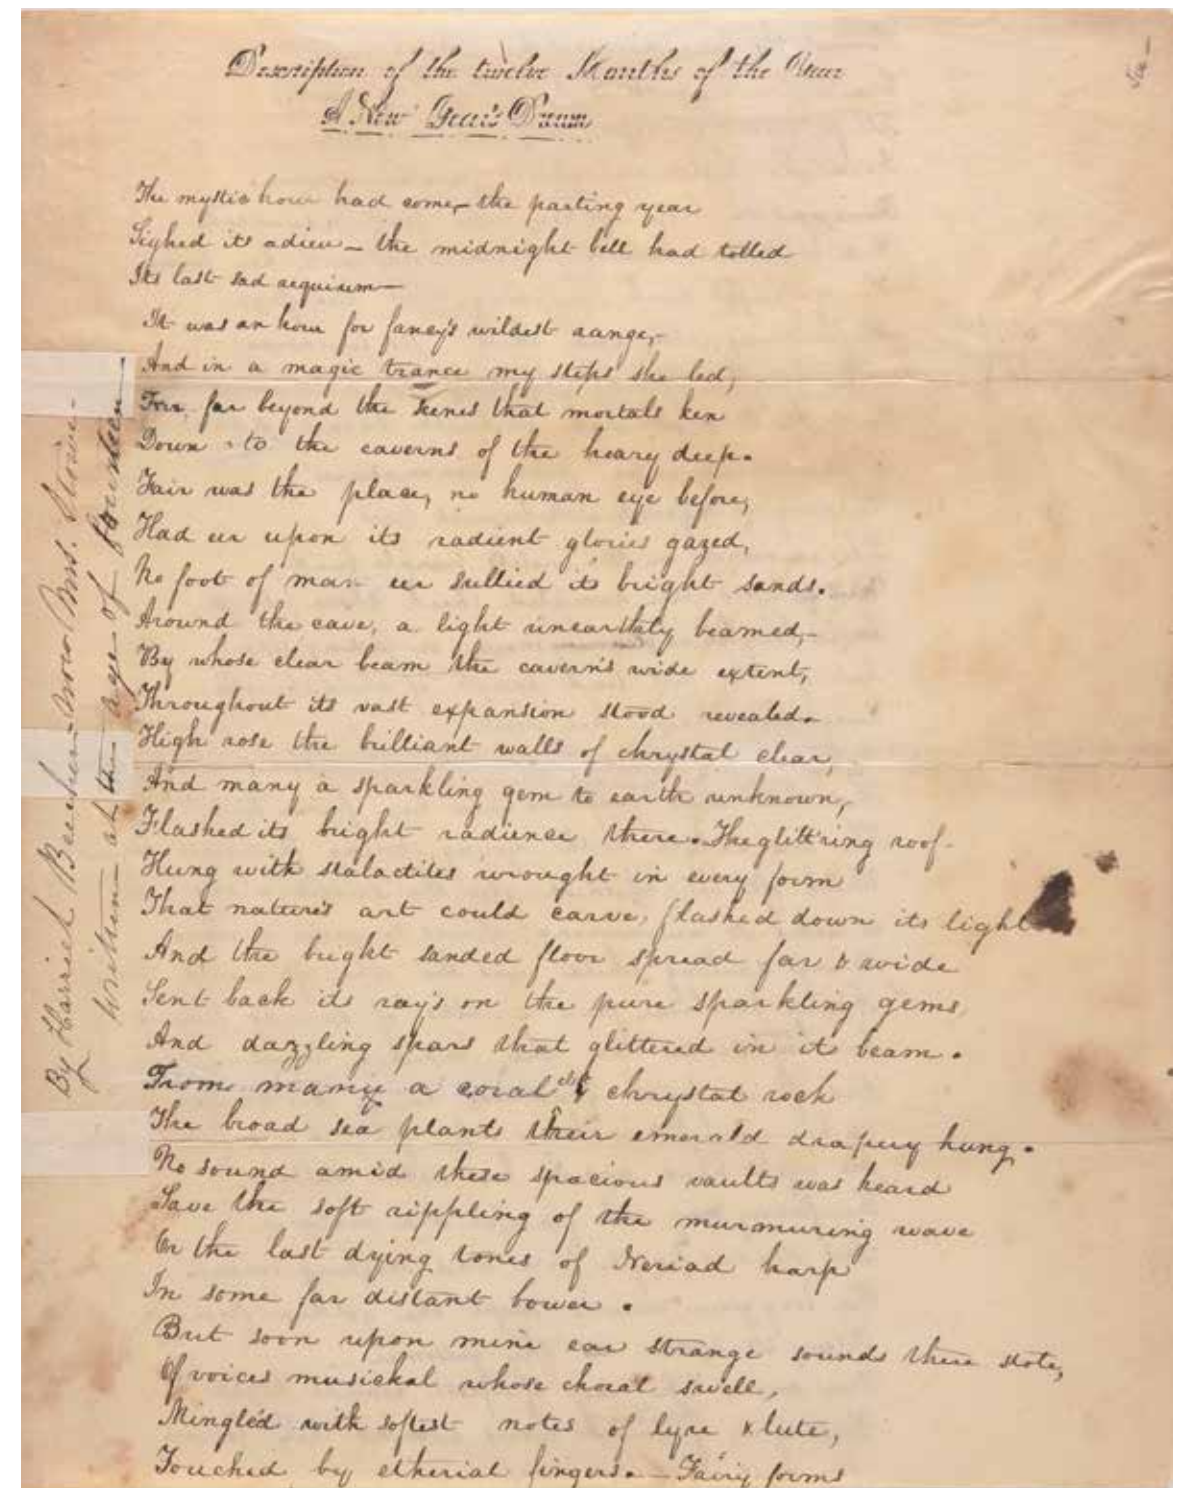 Description of the twelve Months of the Year
A New Year's Dream
The mystic hour had come, – the parting year
Sighed its adieu – the midnight bell had tolled
Its last sad requiem –
It was an hour for fancy's wildest range, –
And in a magic trance my steps she led,
Far, far beyond the scenes that mortals ken
Down to the caverns of the hoary deep.
Fair was the place, no human eye before,
Had eer upon its radient glories gazed,
No foot of man eer sullied its bright sands.
Around the cave, a light unearthly beamed, –
By whose clear beam the cavern's wide extent,
Throughout its vast expansion stood revealed.
High rose the brilliant walls of chrystal clear,
And many a sparkling gem to earth unknown,
Flashed its bright radience there. The glitt'ring roof
Hung with stalactites wrought in every form
That nature's art could carve, flashed down its light
And the bright sanded floor spread far & wide
Sent back its ray's on the pure sparkling gems
And dazzling spars that glittered in it beam.
From many a coral & chrystal rock
The broad sea plants their emerald drapery hung.
No sound amid these spacious vaults was heard
Save the soft rippling of the murmuring wave
Or the last dying tones of Neriad harp
In some far distant bower.
But soon upon mine ear strange sounds there stole,
Of voices musickal whose choral swell,
Mingled with softest notes of lyre & lute,
Touched by etherial fingers. – Fairy forms
By Harriet Beecher – now Mrs. Stowe –
Written at the age of fourteen –